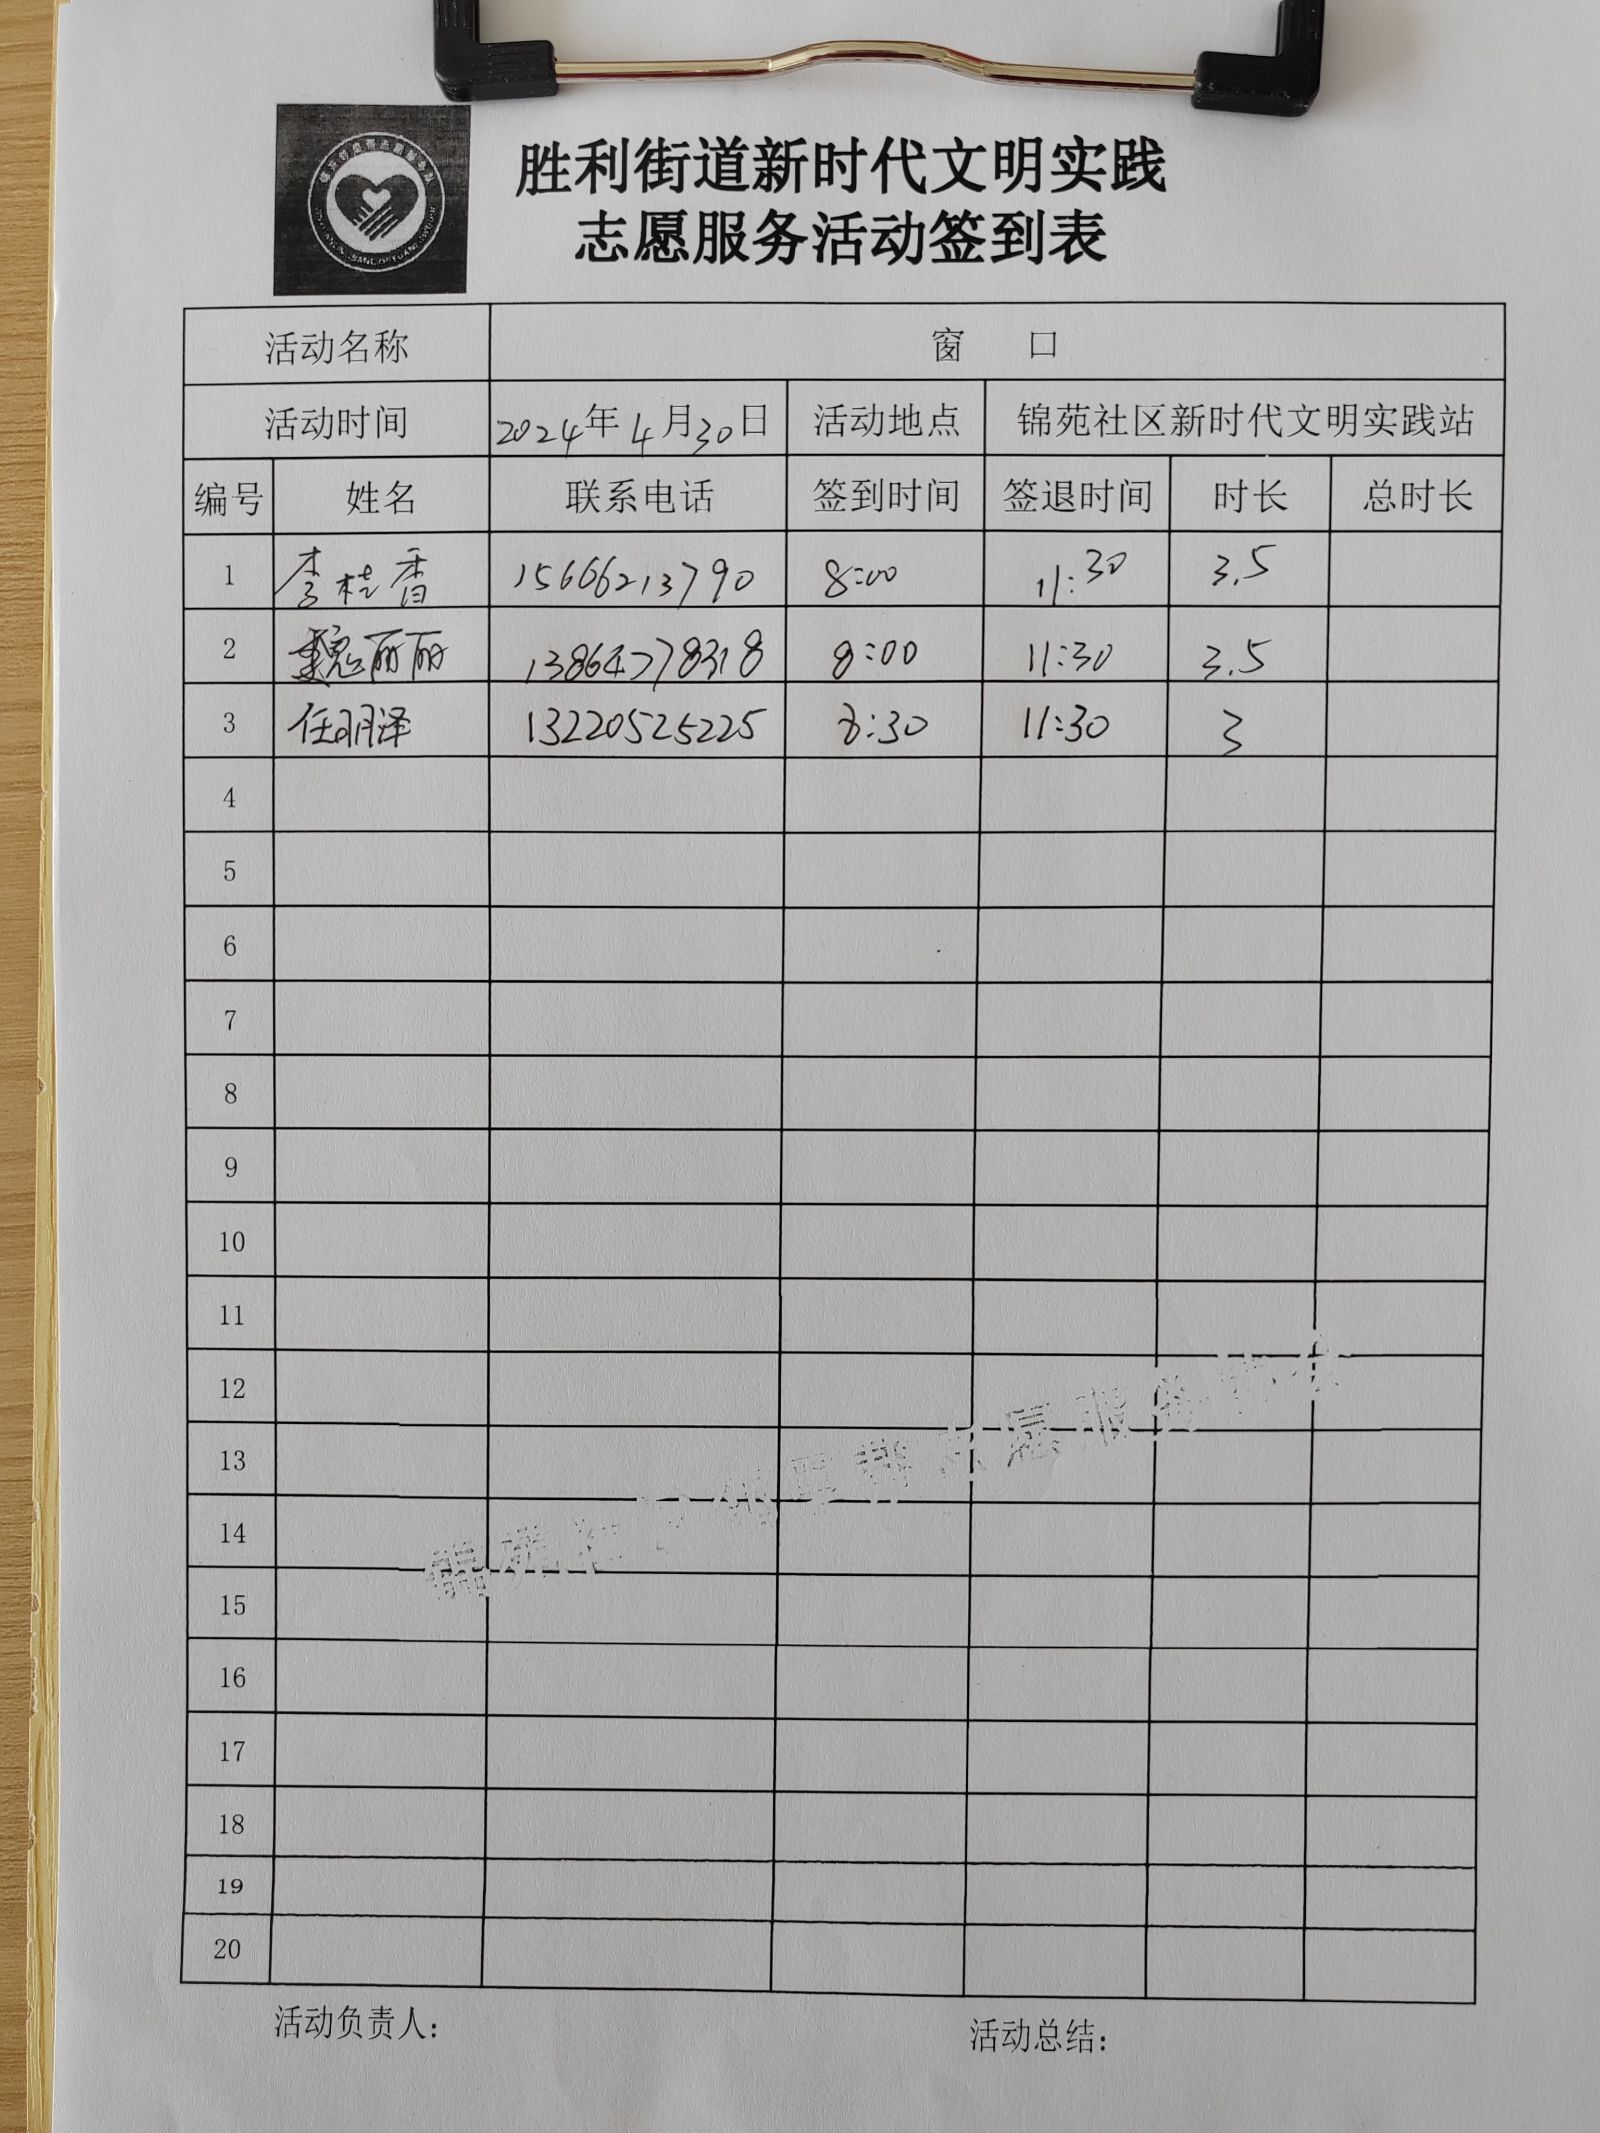 胜利街道新时代文明实践
志愿服务活动签到表
活动名称 窗 口
活动时间 2024年4月30日 活动地点 锦苑社区新时代文明实践站
编号 姓名 联系电话 签到时间 签退时间 时长 总时长
1 李桂香 15666213790 8:00 11:30 3.5
2 魏丽丽 13864778318 8:00 11:30 3.5
3 任明泽 13220525225 8:30 11:30 3
4
5
6
7
8
9
10
11
12
13
14
15
16
17
18
19
20
活动负责人: 活动总结: